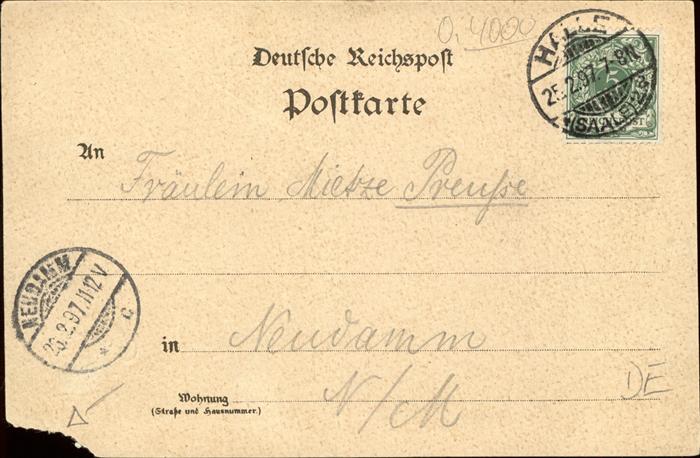 O. 4000
Deutsche Reichspost
Postkarte
HALLE
25.2.97.7-8N.
(SAALE)
REICHSPOST
An
Fräulein Mietze Preuße
NEUDAMM
26.2.97.11-12V
c
in Neudamm
N/M
DE
Wohnung
(Straße und Hausnummer.)